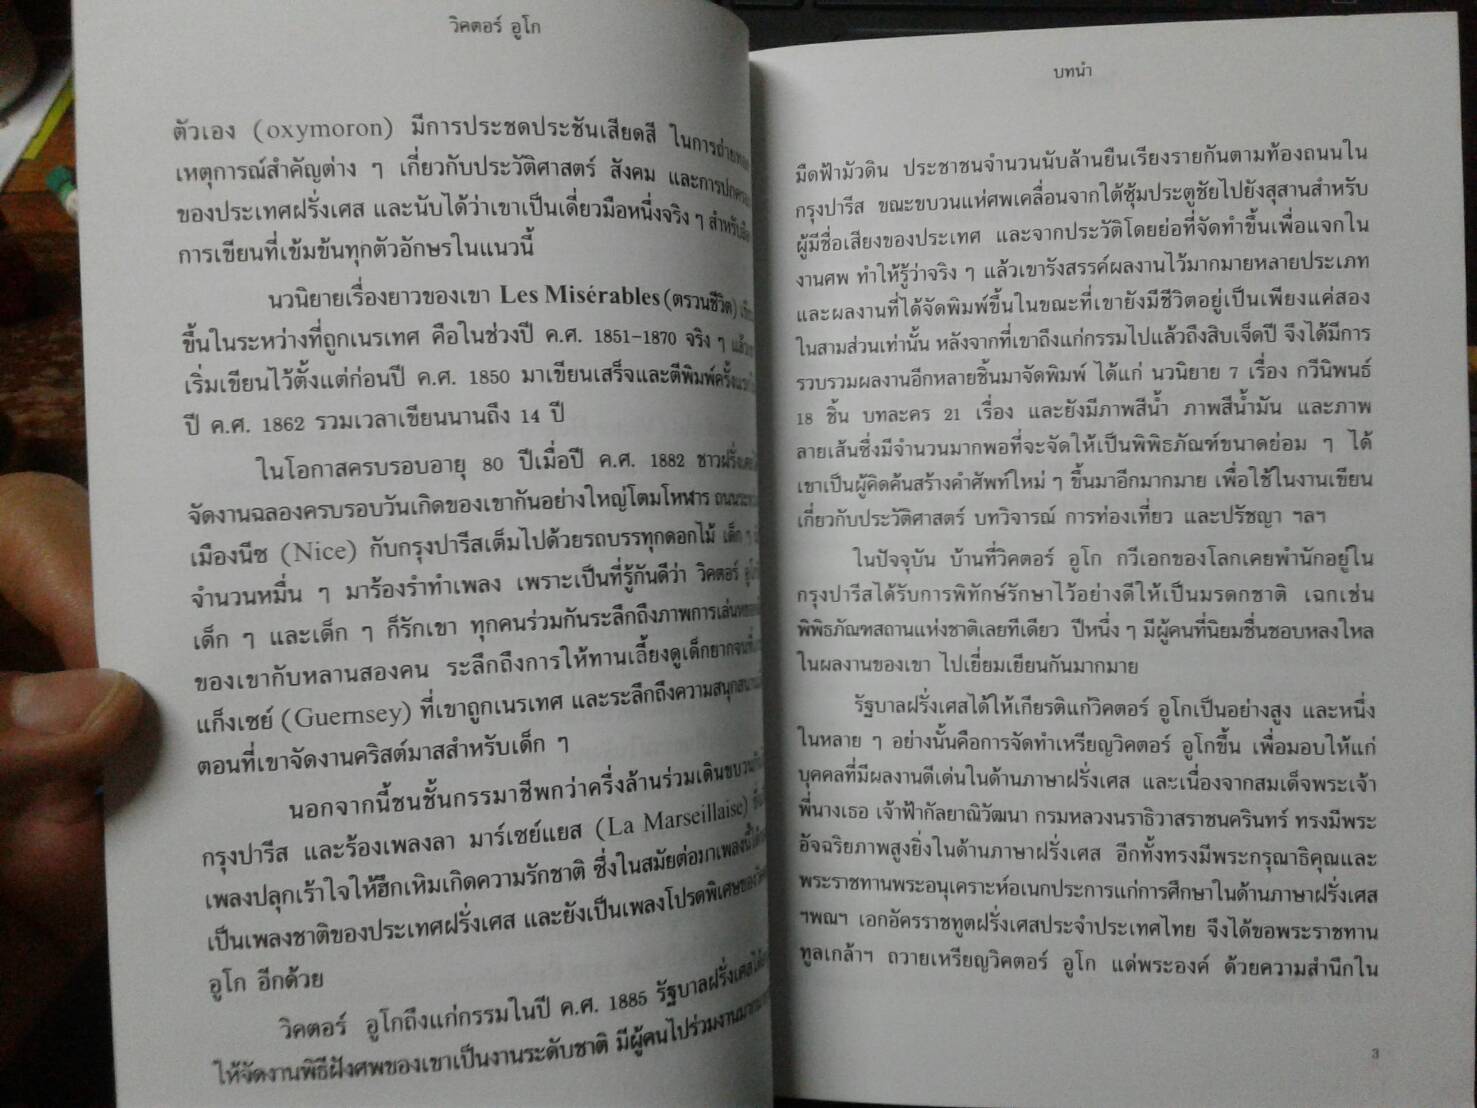 วิคตอร์ อูโก
ตัวเอง (oxymoron) มีการประชดประชันเสียดสี ในการถ่ายทอด
เหตุการณ์สำคัญต่าง ๆ เกี่ยวกับประวัติศาสตร์ สังคม และการปกครอง
ของประเทศฝรั่งเศส และนับได้ว่าเขาเป็นเดี่ยวมือหนึ่งจริง ๆ สำหรับ
การเขียนที่เข้มข้นทุกตัวอักษรในแนวนี้
นวนิยายเรื่องยาวของเขา Les Misérables (ตรวนชีวิต)
ขึ้นในระหว่างที่ถูกเนรเทศ คือในช่วงปี ค.ศ. 1851-1870 จริง ๆ แล้ว
เริ่มเขียนไว้ตั้งแต่ก่อนปี ค.ศ. 1850 มาเขียนเสร็จและตีพิมพ์ครั้งแรก
ปี ค.ศ. 1862 รวมเวลาเขียนนานถึง 14 ปี
ในโอกาสครบรอบอายุ 80 ปีเมื่อปี ค.ศ. 1882 ชาวฝรั่งเศส
จัดงานฉลองครบรอบวันเกิดของเขากันอย่างใหญ่โตมโหฬาร
เมืองนีซ (Nice) กับกรุงปารีสเต็มไปด้วยรถบรรทุกดอกไม้ เด็ก ๆ
จำนวนหมื่น ๆ มาร้องรำทำเพลง เพราะเป็นที่รู้กันดีว่า วิคตอร์ อูโก
เด็ก ๆ และเด็ก ๆ ก็รักเขา ทุกคนร่วมกันระลึกถึงภาพการเล่น
ของเขากับหลานสองคน ระลึกถึงการให้ทานเลี้ยงดูเด็กยากจน
แก็งเซย์ (Guernsey) ที่เขาถูกเนรเทศ และระลึกถึงความสนุกสนาน
ตอนที่เขาจัดงานคริสต์มาสสำหรับเด็ก ๆ
นอกจากนี้ชนชั้นกรรมาชีพกว่าครึ่งล้านร่วมเดินขบวน
กรุงปารีส และร้องเพลงลา มาร์เซย์แยส (La Marseillaise)
เพลงปลุกเร้าใจให้ฮึกเหิมเกิดความรักชาติ ซึ่งในสมัยต่อมาเพลงนี้
เป็นเพลงชาติของประเทศฝรั่งเศส และยังเป็นเพลงโปรดพิเศษของ
อูโก อีกด้วย
วิคตอร์ อูโกถึงแก่กรรมในปี ค.ศ. 1885 รัฐบาลฝรั่งเศส
ให้จัดงานพิธีฝังศพของเขาเป็นงานระดับชาติ มีผู้คนไปร่วมงาน
บทนำ
มืดฟ้ามัวดิน ประชาชนจำนวนนับล้านยืนเรียงรายกันตามท้องถนนใน
กรุงปารีส ขณะขบวนแห่ศพเคลื่อนจากใต้ซุ้มประตูชัยไปยังสุสานสำหรับ
ผู้มีชื่อเสียงของประเทศ และจากประวัติโดยย่อที่จัดทำขึ้นเพื่อแจกใน
งานศพ ทำให้รู้ว่าจริง ๆ แล้วเขารังสรรค์ผลงานไว้มากมายหลายประเภท
และผลงานที่ได้จัดพิมพ์ขึ้นในขณะที่เขายังมีชีวิตอยู่เป็นเพียงแค่สอง
ในสามส่วนเท่านั้น หลังจากที่เขาถึงแก่กรรมไปแล้วถึงสิบเจ็ดปี จึงได้มีการ
รวบรวมผลงานอีกหลายชิ้นมาจัดพิมพ์ ได้แก่ นวนิยาย 7 เรื่อง กวีนิพนธ์
18 ชิ้น บทละคร 21 เรื่อง และยังมีภาพสีน้ำ ภาพสีน้ำมัน และภาพ
ลายเส้นซึ่งมีจำนวนมากพอที่จะจัดให้เป็นพิพิธภัณฑ์ขนาดย่อม ๆ ได้
เขาเป็นผู้คิดค้นสร้างคำศัพท์ใหม่ ๆ ขึ้นมาอีกมากมาย เพื่อใช้ในงานเขียน
เกี่ยวกับประวัติศาสตร์ บทวิจารณ์ การท่องเที่ยว และปรัชญา ฯลฯ
ในปัจจุบัน บ้านที่วิคตอร์ อูโก กวีเอกของโลกเคยพำนักอยู่ใน
กรุงปารีสได้รับการพิทักษ์รักษาไว้อย่างดีให้เป็นมรดกชาติ เฉกเช่น
พิพิธภัณฑสถานแห่งชาติเลยทีเดียว ปีหนึ่ง ๆ มีผู้คนที่นิยมชื่นชอบหลงใหล
ในผลงานของเขา ไปเยี่ยมเยียนกันมากมาย
รัฐบาลฝรั่งเศสได้ให้เกียรติแก่วิคตอร์ อูโกเป็นอย่างสูง และหนึ่ง
ในหลาย ๆ อย่างนั้นคือการจัดทำเหรียญวิคตอร์ อูโกขึ้น เพื่อมอบให้แก่
บุคคลที่มีผลงานดีเด่นในด้านภาษาฝรั่งเศส และเนื่องจากสมเด็จพระเจ้า
พี่นางเธอ เจ้าฟ้ากัลยาณิวัฒนา กรมหลวงนราธิวาสราชนครินทร์ ทรงมีพระ
อัจฉริยภาพสูงยิ่งในด้านภาษาฝรั่งเศส อีกทั้งทรงมีพระกรุณาธิคุณและ
พระราชทานพระอนุเคราะห์อเนกประการแก่การศึกษาในด้านภาษาฝรั่งเศส
ฯพณฯ เอกอัครราชทูตฝรั่งเศสประจำประเทศไทย จึงได้ขอพระราชทาน
ทูลเกล้าฯ ถวายเหรียญวิคตอร์ อูโก แด่พระองค์ ด้วยความสำนึกใน
3